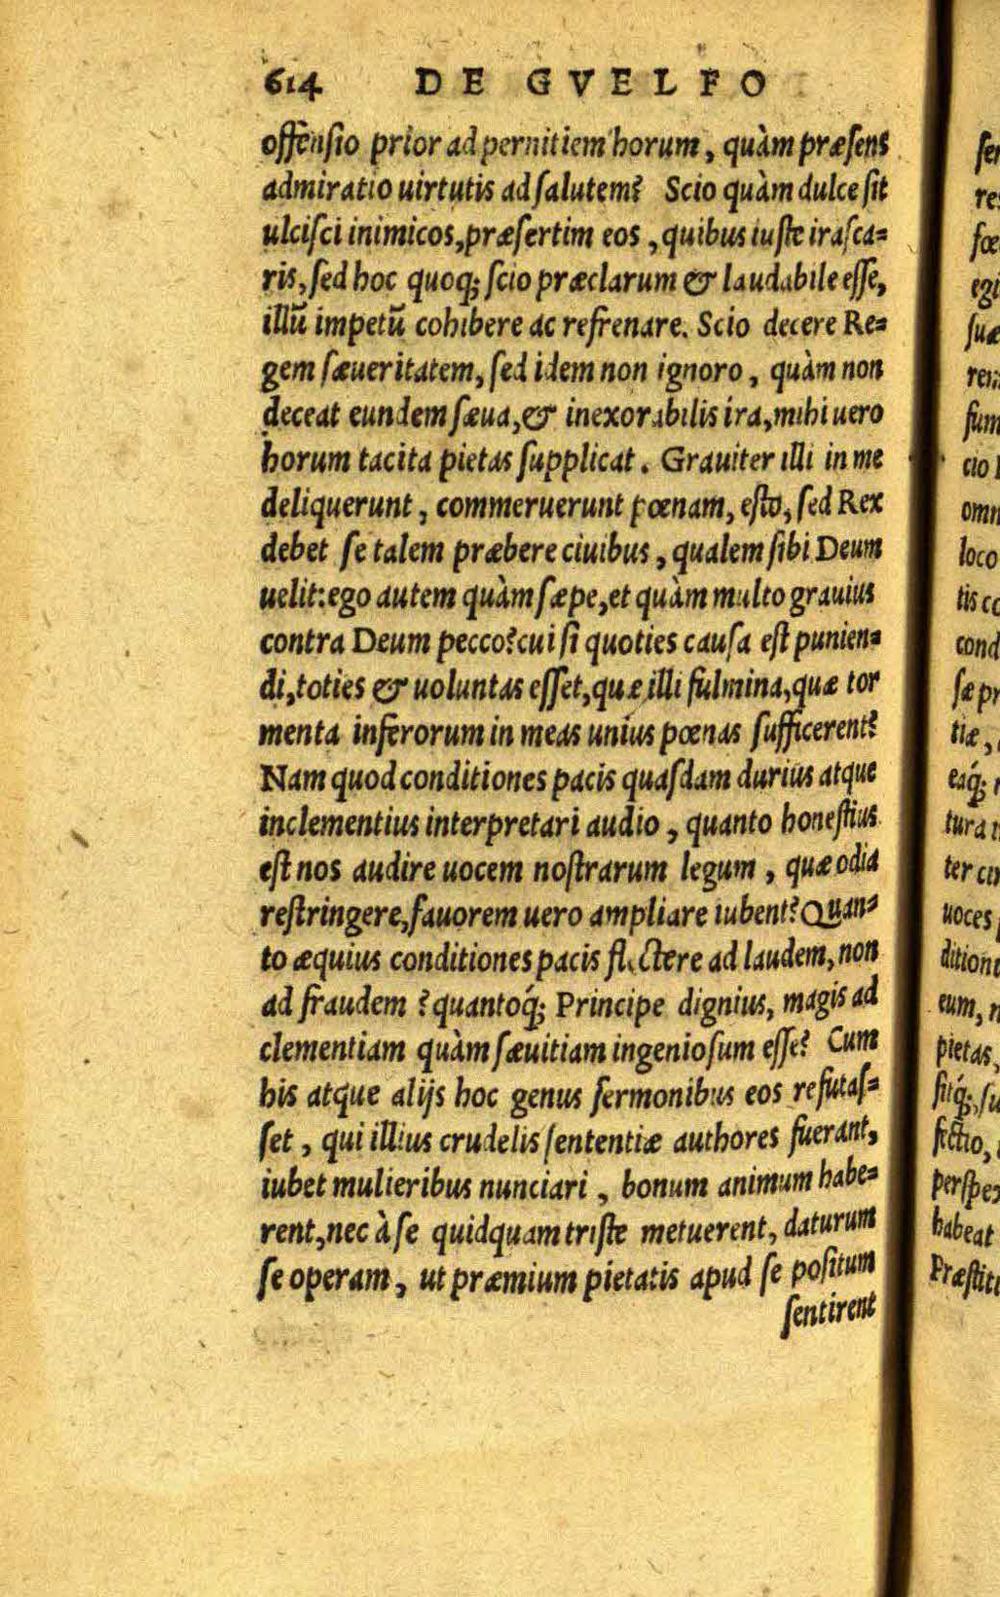 614 DE GVELFO
offensio prior ad pernitiem horum, quàm præsens
admiratio uirtutis ad salutem? Scio quàm dulce sit
ulcisci inimicos, præsertim eos, quibus iuste irasca=
ris, sed hoc quoq; scio præclarum & laudabile esse,
illũ impetũ cohibere ac refrenare. Scio decere Re=
gem sæueritatem, sed idem non ignoro, quàm non
deceat eundem sæua, & inexorabilis ira, mihi uero
horum tacita pietas supplicat. Grauiter illi in me
deliquerunt, commeruerunt pœnam, esto, sed Rex
debet se talem præbere ciuibus, qualem sibi Deum
uelit: ego autem quàm sæpe, et quàm multo grauius
contra Deum pecco? cui si quoties causa est punien=
di, toties & uoluntas esset, quæ illi fulmina, quæ tor
menta inferorum in meas unius pœnas sufficerent?
Nam quod conditiones pacis quasdam durius atque
inclementius interpretari audio, quanto honestius
est nos audire uocem nostrarum legum, quæ odia
restringere, fauorem uero ampliare iubent? Quan=
to æquius conditiones pacis flectere ad laudem, non
ad fraudem? quantoq́; Principe dignius, magis ad
clementiam quàm sæuitiam ingeniosum esse? Cum
his atque alijs hoc genus sermonibus eos refutas=
set, qui illius crudelis sententiæ authores fuerant,
iubet mulieribus nunciari, bonum animum habe=
rent, nec à se quidquam triste metuerent, daturum
se operam, ut præmium pietatis apud se positum
sentirent